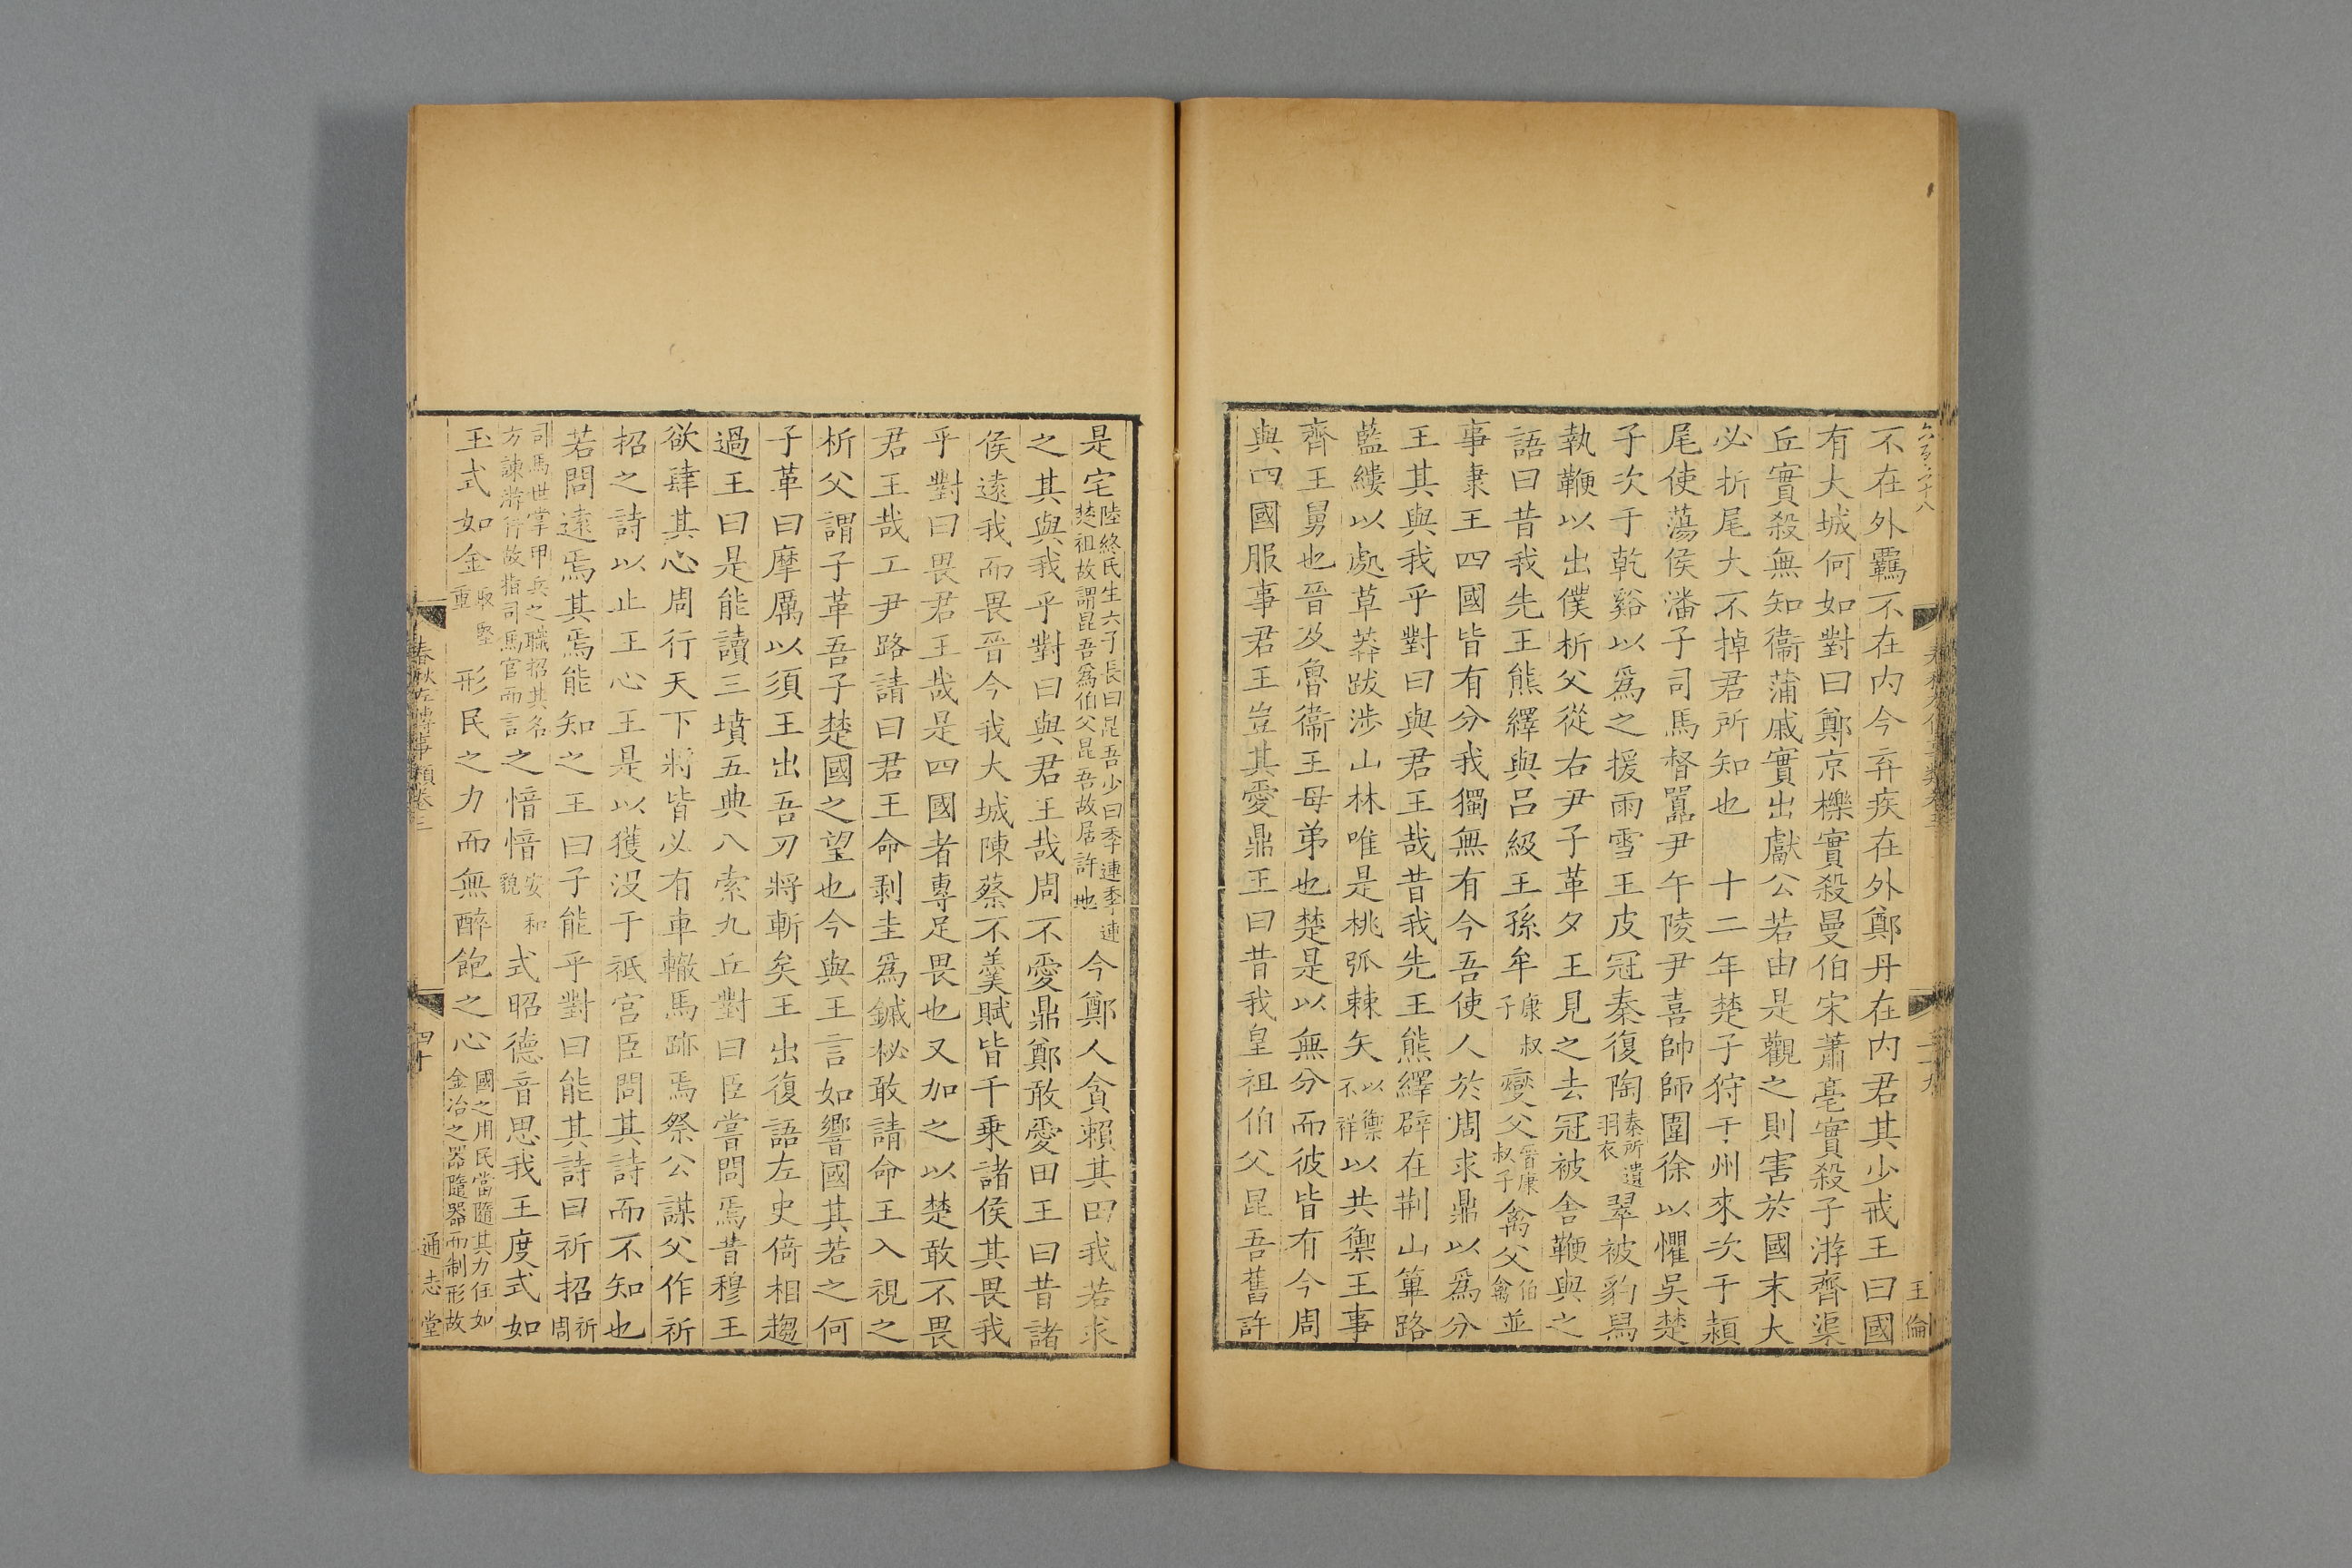 不在外羈不在内今弃疾在外鄭丹在内君其少戒王曰國
有大城何如對曰鄭京櫟實殺曼伯宋蕭亳實殺子游齊渠
丘實殺無知衞蒲戚實出獻公若由是觀之則害於國末大
必折尾大不掉君所知也　十二年楚子狩于州來次于潁
尾使蕩侯潘子司馬督嚻尹午陵尹喜帥師圍徐以懼吳楚
子次于乾谿以爲之援雨雪王皮冠秦復陶秦所遺羽衣翠被豹舄
執鞭以出僕析父從右尹子革夕王見之去冠被舍鞭與之
語曰昔我先王熊繹與呂級王孫牟康叔子燮父晉康叔子禽父伯禽並
事康王四國皆有分我獨無有今吾使人於周求鼎以爲分
王其與我乎對曰與君王哉昔我先王熊繹辟在荆山篳路
藍縷以處草莽跋涉山林唯是桃弧棘矢以禦不祥以共禦王事
齊王舅也晉及魯衞王母弟也楚是以無分而彼皆有今周
與四國服事君王豈其愛鼎王曰昔我皇祖伯父昆吾舊許
王倫
是宅陸終氏生六子長曰昆吾少曰季連季連楚祖故謂昆吾爲伯父昆吾故居許地今鄭人貪賴其田我若求
之其與我乎對曰與君王哉周不愛鼎鄭敢愛田王曰昔諸
侯遠我而畏晉今我大城陳蔡不羹賦皆千乗諸侯其畏我
乎對曰畏君王哉是四國者專足畏也又加之以楚敢不畏
君王哉工尹路請曰君王命剥圭爲鏚柲敢請命王入視之
析父謂子革吾子楚國之望也今與王言如響國其若之何
子革曰摩厲以須王出吾刃將斬矣王出復語左史倚相趨
過王曰是能讀三墳五典八索九丘對曰臣嘗問焉昔穆王
欲肆其心周行天下將皆必有車轍馬跡焉祭公謀父作祈
招之詩以止王心王是以獲没于祗宮臣問其詩而不知也
若問遠焉其焉能知之王曰子能乎對曰能其詩曰祈招祈周
司馬世掌甲兵之職招其名方諫游行故指司馬官而言之愔愔安和貌式昭德音思我王度式如
玉式如金取堅重形民之力而無醉飽之心國之用民當隨其力任如金冶之器隨器而制形故
春秋左傳事類卷三
四十
通志堂